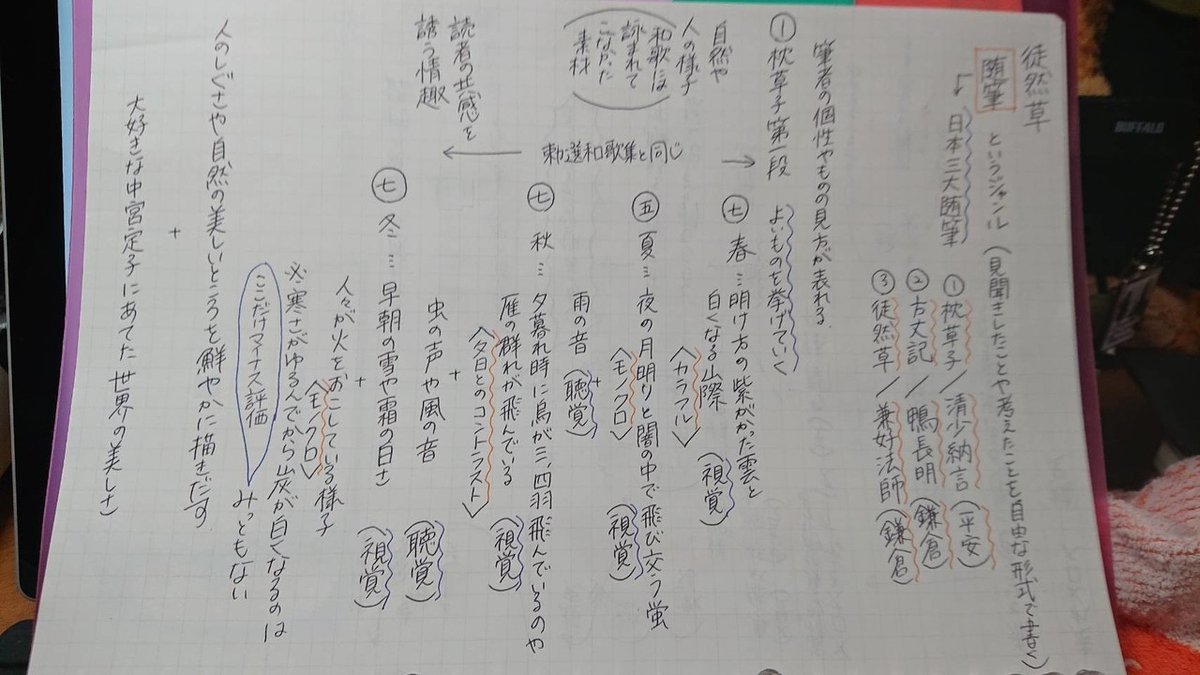 徒然草
随筆 というジャンル (見聞きしたことや考えたことを自由な形式で書く)
↓日本三大随筆
①枕草子/清少納言(平安)
②方丈記/鴨長明(鎌倉)
③徒然草/兼好法師(鎌倉)
筆者の個性やものの見方が表れる
①枕草子第一段 よいものを挙げていく
自然や
人の様子
(和歌には
詠まれて
こなかった
素材)
← 勅選和歌集と同じ →
読者の共感を
誘う情趣
㊆ 春…明け方の紫がかった雲と
白くなる山際 (視覚)
<カラフル>
㊄ 夏…夜の月明りと闇の中で飛び交う蛍
<モノクロ> (視覚)
+
雨の音(聴覚)
㊆ 秋…夕暮れ時に鳥が三、四羽飛んでいるのや
雁の群れが飛んでいる (視覚)
<夕日とのコントラスト>
+
虫の声や風の音 (聴覚)
㊆ 冬…早朝の雪や霜の白さ (視覚)
+ <モノクロ>
人々が火をおこしている様子
※寒さがゆるんでから灰が白くなるのは
みっともない
ここだけマイナス評価
人のしぐさや自然の美しいところを鮮やかに描きだす
+
大好きな中宮定子にあてた世界の美しさ
BUFFALO